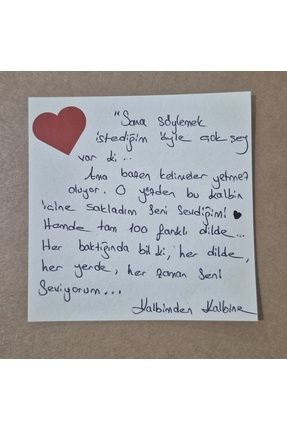 "Sana söylemek
istediğim öyle çok şey
var ki...
Ama bazen kelimeler yetmez
oluyor. O yüzden bu kalbin
içine sakladım seni sevdiğimi
Hemde tam 100 farklı dilde...
Her baktığında bil ki, her dilde,
her yerde, her zaman seni
Seviyorum...
Kalbimden Kalbine